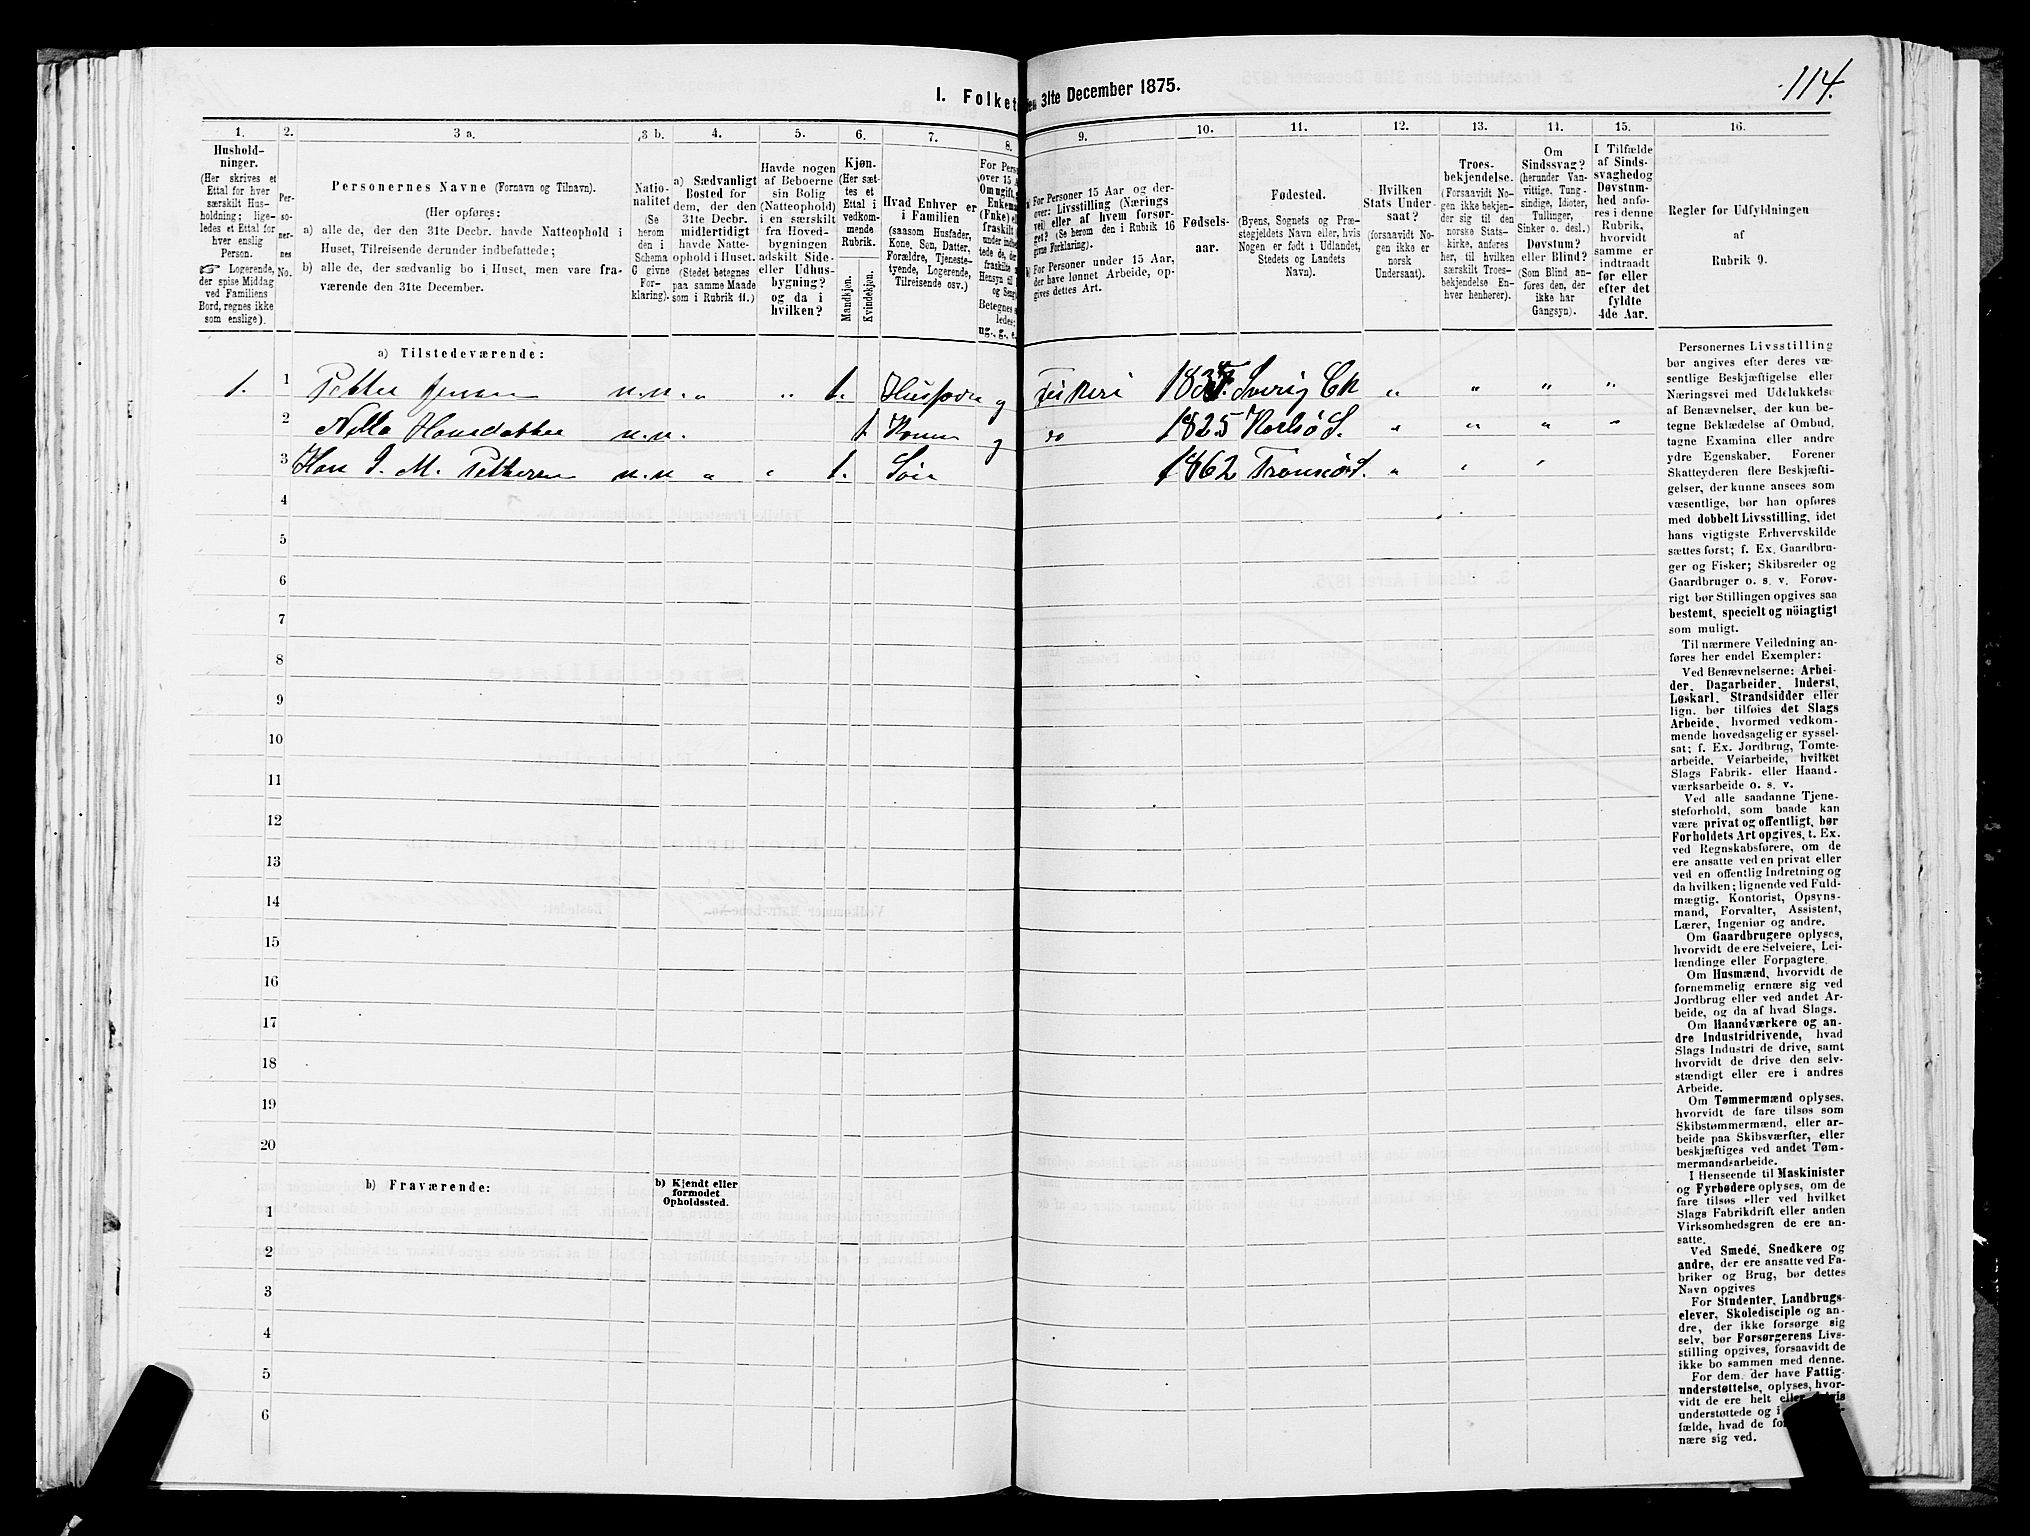 114.
I. Folket
den 31te December 1875.
1.
2.
3 a.
3 b.
4.
5.
6.
7.
8.
9.
10.
11.
12.
13.
14.
15.
16.
Hushold-
ninger.
(Her skrives et
Ettal for hver
særskilt Hus-
holdning; lige-
ledes et Ettal for
hver enslig
Person.
☞ Logerende,
der spise Middag
ved Familiens
Bord, regnes ikke
som enslige).
Per-
so-
ner-
nes
No.
Personernes Navne (Fornavn og Tilnavn).
(Her opføres:
a) alle de, der den 31te Decbr. havde Natteophold i
Huset, Tilreisende derunder indbefattede;
b) alle de, der sædvanlig bo i Huset, men vare fra-
værende den 31te December.
Natio-
nalitet
(Se
herom
den i
Schema
G givne
For-
klaring).
a) Sædvanligt
Bosted for
dem, der den
31te Decbr.
midlertidigt
havde Natte-
ophold i Huset.
(Stedet betegnes
paa samme Maade
som i Rubrik 11.)
Havde nogen
af Beboerne
sin Bolig
(Natteophold)
i en særskilt
fra Hoved-
bygningen
adskilt Side-
eller Udhus-
bygning?
og da i
hvilken?
Kjøn.
(Her sæt-
tes et
Ettal i
vedkom-
mende
Rubrik.
Mandkjøn.
Kvindekjøn.
Hvad Enhver er
i Familien
(saasom Husfader,
Kone, Søn, Datter,
Forældre, Tjeneste-
tyende, Logerende,
Tilreisende osv.)
For Pers
over 15 A
Om ugift,
Enkema
(Fnke) el
fraskilt
Betegnes s
ledes:
ug., g., e.
a) For Personer 15 Aar og der-
over: Livsstilling (Nærings
vei) eller af hvem forsør-
get? (Se herom den i Rubrik 16
givne Forklaring).
b) For Personer under 15 Aar,
der have lønnet Arbeide, op-
gives dettes Art.
Fødsels-
aar.
Fødested.
(Byens, Sognets og Præ-
stegjeldets Navn eller, hvis
Nogen er født i Udlandet,
Stedets og Landets
Navn).
Hvilken
Stats Under-
saat?
(forsaavidt No-
gen ikke er
norsk
Undersaat).
Troes-
bekjendelse.
(Forsaavidt No-
gen ikke bekjen-
der sig til den
norske Stats-
kirke, anføres
her, til hvilken
særskilt Troes-
bekjendelse En-
hver henhører).
Om
Sindssvag?
(herunder Van-
vittige, Tung-
sindige, Idioter,
Tullinger,
Sinker o. desl.)
Døvstum?
eller Blind?
(Som Blind an-
føres den, der
ikke har
Gangsyn).
I Tilfælde
af Sinds-
svaghed og
Døvstum-
hed anfø-
res i denne
Rubrik,
hvorvidt
samme er
indtraadt
før eller
efter det
fyldte
4de Aar.
Regler for Udfyldningen
af
Rubrik 9.
a) Tilstedeværende:
1. 1 Petter Jensen n.n. „ „ 1. Husfader g Fiskeri 183 Sverig „ „ „ „
2 Hansdatter n.n. 1 Kone g do 1825 Karlsø S. „ „ „ „
3 Han J. M. n.n „ „ 1. Søn 1862 Tromsø S. „ „ „
4
5
6
7
8
9
10
11
12
13
14
15
16
17
18
19
20
b) Fraværende:
b) Kjendt eller
formodet
Opholdssted.
1
2
3
4
5
6
Personernes Livsstilling
bør angives efter deres væ-
sentlige Beskjæftigelse eller
Næringsvei med Udelukkelse
af Benævnelser, der kun be-
tegne Beklædelse af Ombud,
tagne Examina eller andre
ydre Egenskaber. Forener
Skatteyderen flere Beskjæfti-
gelser, der kunne ansees som
væsentlige, bør han opføres
med dobbelt Livsstilling, idet
hans vigtigste Erhvervskilde
sættes først; f. Ex. Gaardbru-
ger og Fisker; Skibsreder og
Gaardbruger o. s. v. Forøv-
rigt bør Stillingen opgives saa
bestemt, specielt og nöiagtigt
som muligt.
Til nærmere Veiledning an-
føres her endel Exempler:
Ved Benævnelserne: Arbei-
der, Dagarbeider, Inderst,
Løskarl, Strandsidder eller
lign. bør tilføies det Slags
Arbeide, hvormed vedkom-
mende hovedsagelig er syssel-
sat; f. Ex. Jordbrug, Tomte-
arbeide, Veiarbeide, hvilket
Slags Fabrik- eller Haand-
værksarbeide o. s. v.
Ved alle saadanne Tjene-
steforhold, som baade kan
være privat og offentligt, bør
Forholdets Art opgives, t. Ex.
ved Regnskabsførere, om de
ere ansatte ved en privat eller
ved en offentlig Indretning og
da hvilken; lignende ved Fuld-
mægtig, Kontorist, Opsyns-
mand, Forvalter, Assistent,
Lærer, Ingeniør og andre.
Om Gaardbrugere oplyses,
hvorvidt de ere Selveiere, Lei-
lændinge eller Forpagtere.
Om Husmænd, hvorvidt de
fornemmelig ernære sig ved
Jordbrug eller ved andet Ar-
beide, og da af hvad Slags.
Om Haandværkere og an-
dre Industridrivende, hvad
Slags Industri de drive, samt
hvorvidt de drive den selv-
stændigt eller ere i andres
Arbeide.
Om Tømmermænd oplyses,
hvorvidt de fare tilsøs som
Skibstømmermænd, eller ar-
beide paa Skibsværfter, eller
beskjæftiges ved andet Tøm-
mermandsarbeide.
I Henseende til Maskinister
og Fyrbødere oplyses, om de
fare tilsøs eller ved hvilket
Slags Fabrikdrift eller anden
Virksomhedsgren de ere an-
satte.
Ved Smede, Snedkere og
andre, der ere ansatte ved Fa-
briker og Brug, bør dettes
Navn opgives
For Studenter, Landbrugs-
elever, Skoledisciple og an-
dre, der ikke forsørge sig
selv, bør Forsørgerens Livs-
stilling opgives, forsaavidt de
ikke bo sammen med denne.
For dem, der have Fattig-
understøttelse, oplyses, hvor-
vidt de ere helt eller
understøttede og i
fælde, hvad de
nære sig ved.